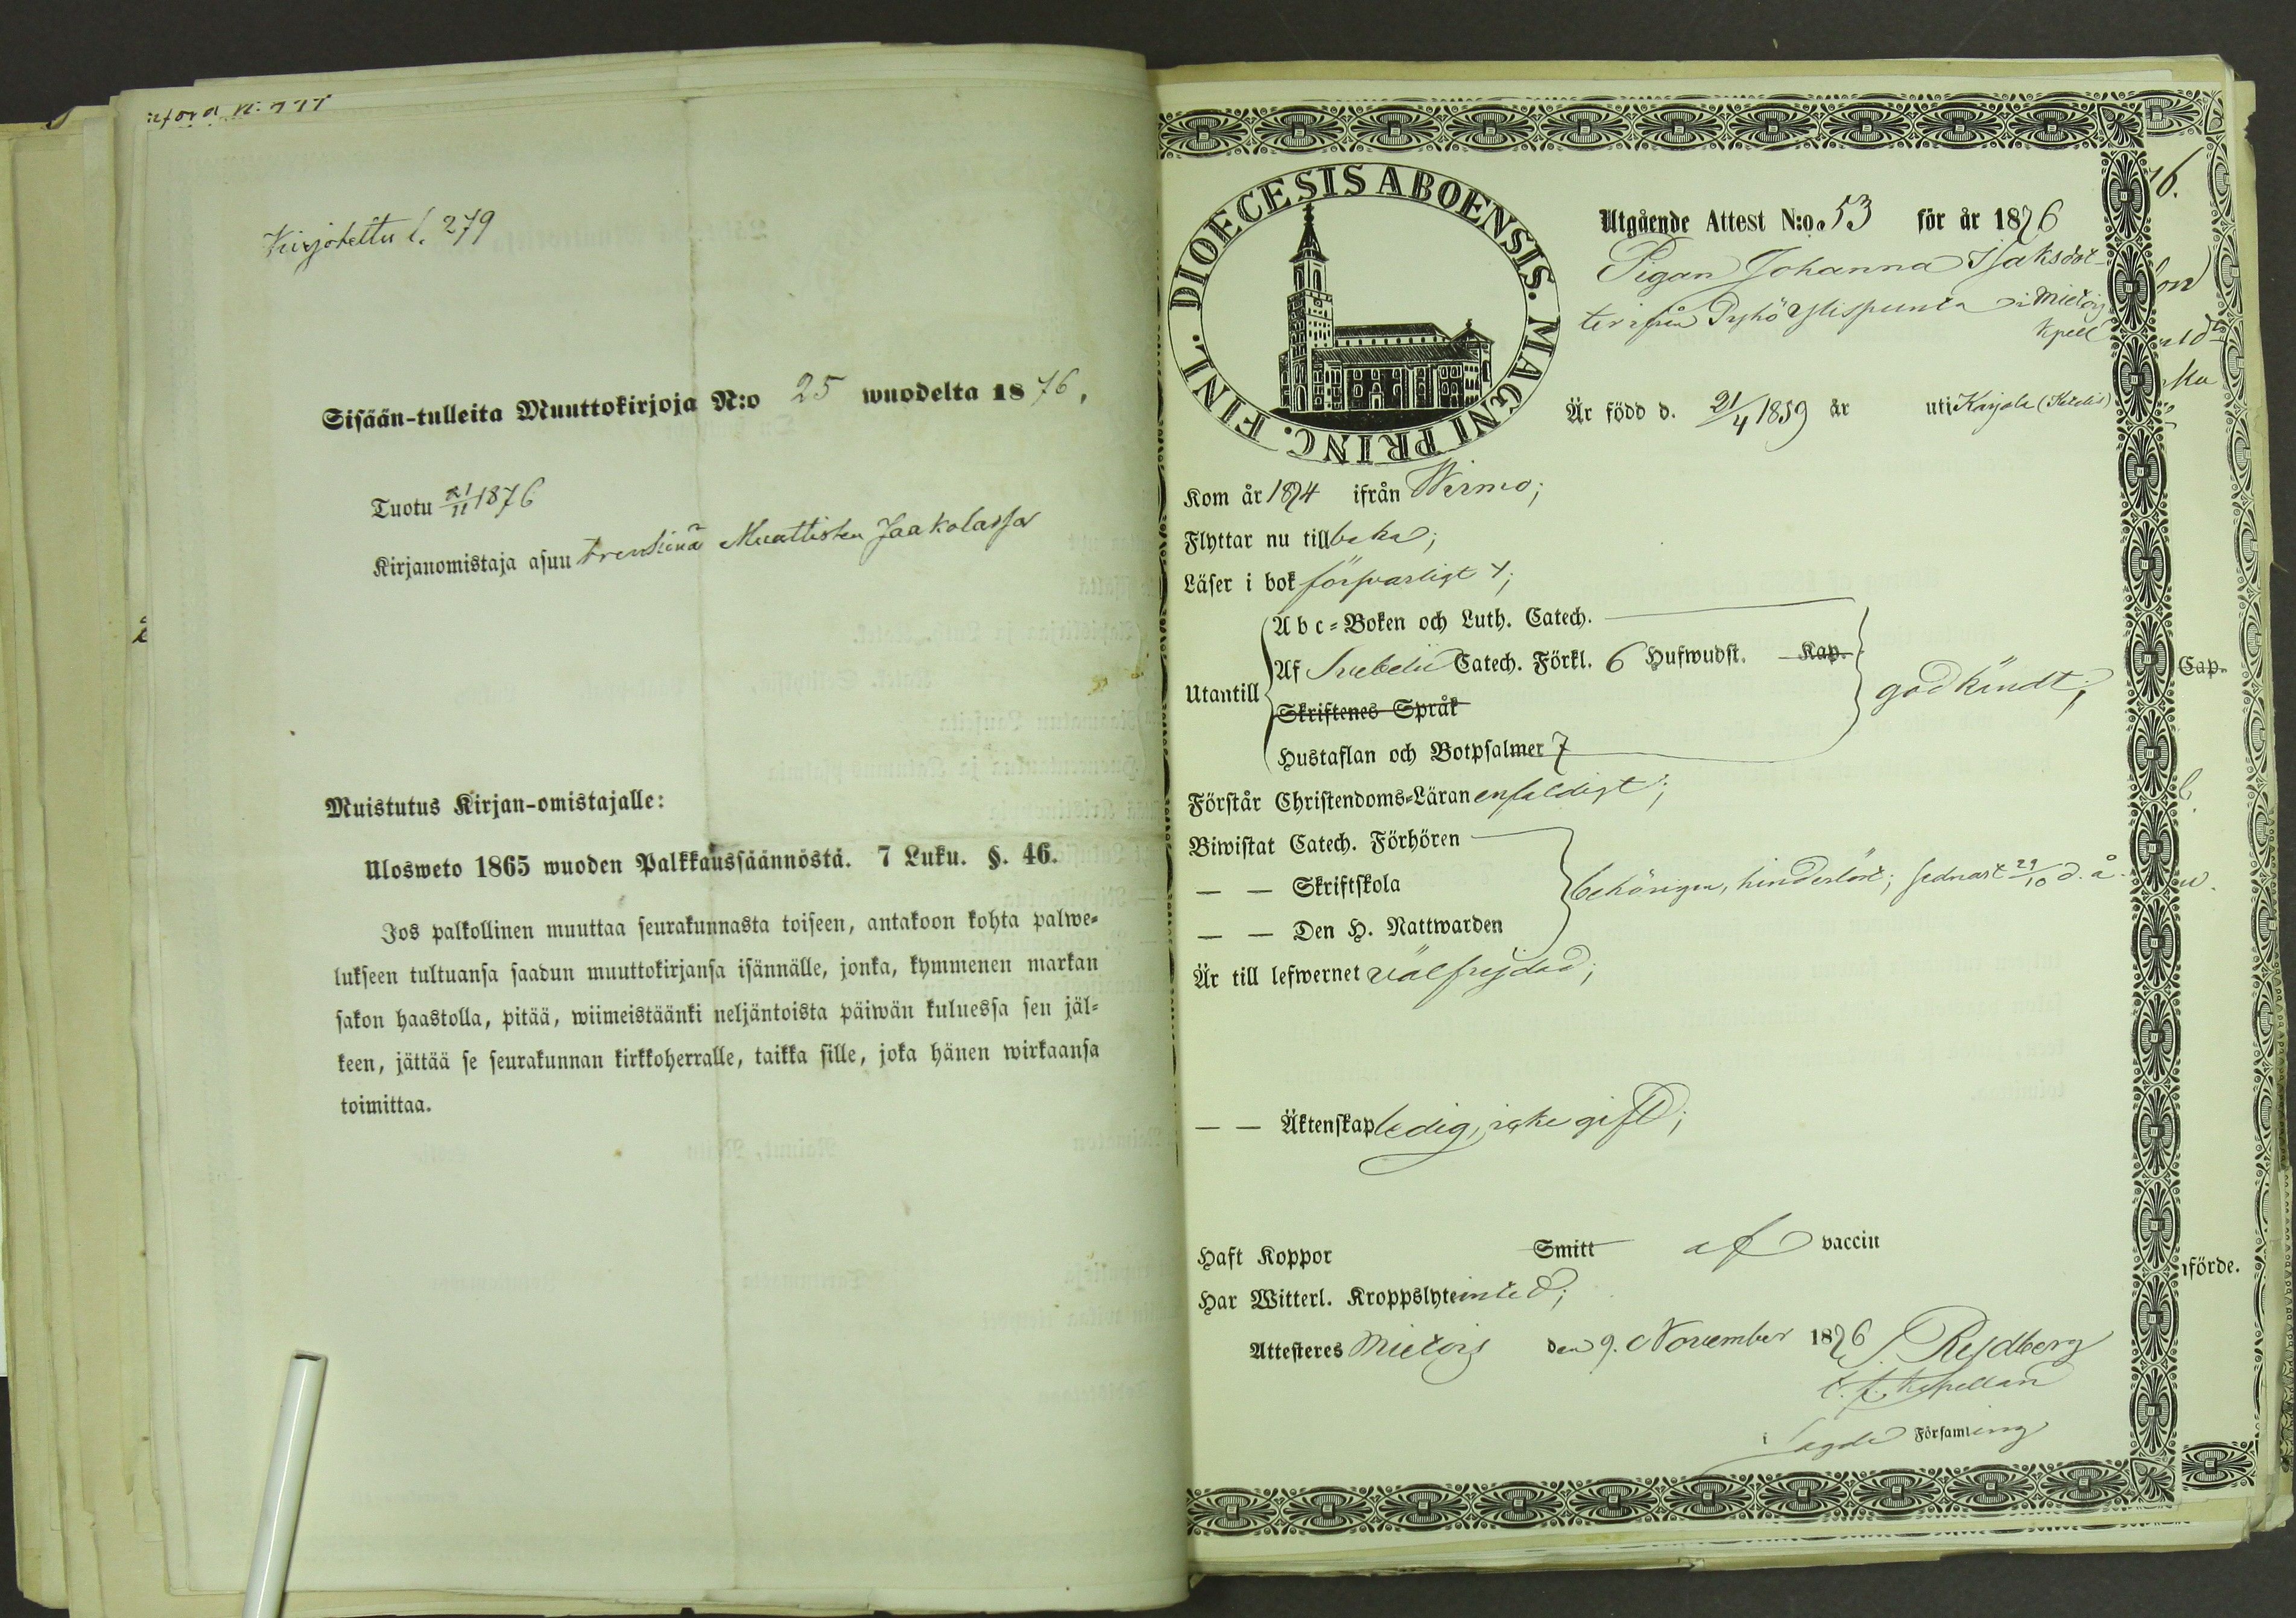 Kirjotettu s. 279
Sisään-tulleita Muuttokirjoja N:o 25 wuodelta 1876.
Tuotu 21/11 1876
Kirjanomistaja asuu Muattisten Jaakolassa
Muistutus Kirjan-omistajalle:
Ulosweto 1865 wuoden Palkkaussäännöstä. 7 Luku. §. 46.
Jos palkollinen muuttaa seurakunnasta toiseen, antakoon kohta palwe-
lukseen tultuansa saadun muuttokirjansa isännälle, jonka, kymmenen markan
sakon haastolla, pitää, wiimeistäänki neljäntoista päiwän kuluessa sen jäl-
keen, jättää se seurakunnan kirkkoherralle, taikka sille, joka hänen wirkaansa
toimittaa.
DIOECESIS ABOENSIS. MAGNI PRINC. FINL.
Utgående Attest N:o 53 för år 1876
Pigan Johanna Isaksdot-
ter ifrån Pyhö Ylispunta i Mietois
kpell
Är född d. 21/4 1859 år uti Karjala
Kom år 1874 ifrån Wirmo;
Flyttar nu tillbaka;
Läser i bok försvarligt;
Abc-Boken och Luth. Catech.
Utantill
Af Svebelii Catech. Förkl. 6 Hufwudst. Kap.
godkändt;
Skriftenes Språk
Hustaflan och Botpsalmer 7
Förstår Christendoms-Läran enfaldigt;
Biwistat Catech. Förhören
— — Skriftskola
behörigen, hinderlöst; sednast 29/10 d. å.
— — Den H. Nattwarden
Är till lefwernet välfrejdad;
— — Äktenskap ledig, icke gift;
Haft Koppor Smitt af vaccin
Har Witterl. Kroppslyte intet;
Attesteres Mietois den 9. November 1876 Rydberg
t. f. Kapellan
i sagde Församling
Cap.
förde.